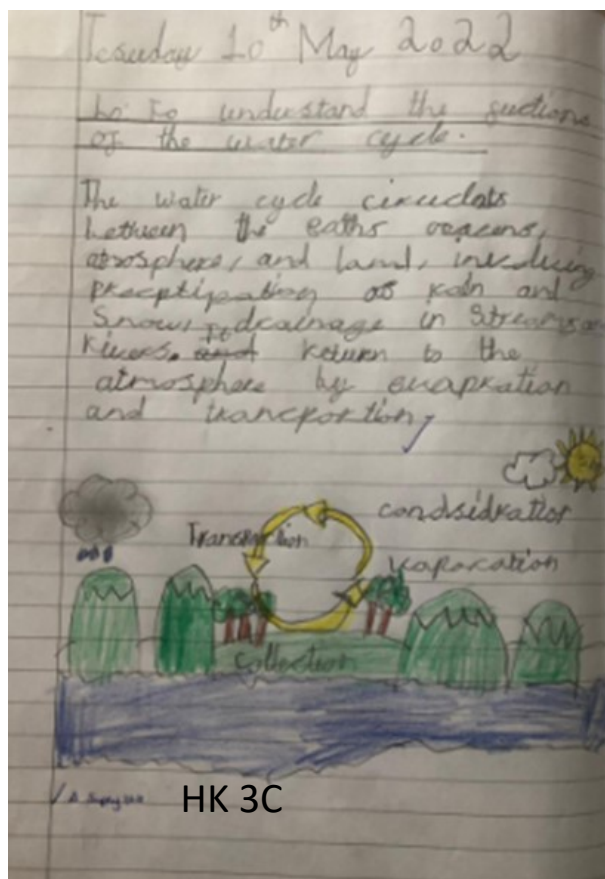 Tesuday 10th May 2022
Lo: To understand the
of the water cycle.
The water cycle circulats
between the eaths oceans,
atosphere, and land, involving
preceptipation as rain and
snow, drainage in streams and
rivers. and return to the
atmosphere by evapration
and transportion
condsidration
Transportion
vaporation
Collection
HK 3C